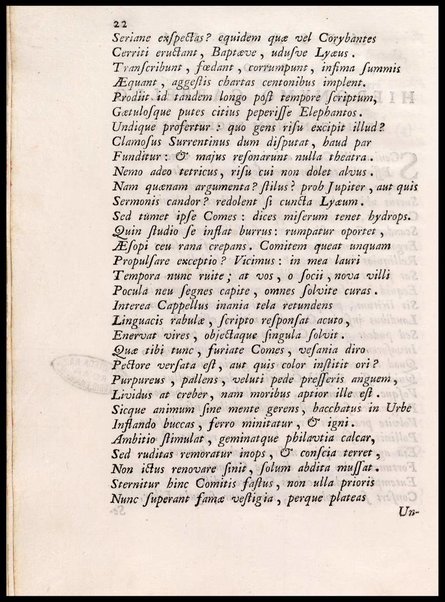 22
Seriane exspectas? equidem quæ vel Corybantes
Cerriti eructant, Baptæve, udusve Lyæus.
Transcribunt, fœdant, corrumpunt, infima summis
Æquant, aggestis chartas centonibus implent.
Prodit id tandem longo post tempore scriptum,
Gætulosque putes citius peperisse Elephantos.
Undique profertur: quo gens risu excipit illud?
Clamosus Surrentinus dum disputat, haud par
Funditur: & majus resonarunt nulla theatra.
Nemo adeo tetricus, risu cui non dolet alvus.
Nam quænam argumenta? stilus? proh Jupiter, aut quis
Sermonis candor? redolent si cuncta Lyæum.
Sed tumet ipse Comes: dices miserum tenet hydrops.
Quin studio se inflat burrus: rumpatur oportet,
Æsopi ceu rana crepans. Comitem queat unquam
Propulsare exceptio? Vicimus: in mea lauri
Tempora nunc ruite; at vos, o socii, nova villi
Pocula neu segnes capite, omnes solvite curas.
Interea Cappellus inania tela retundens
Linguacis rabulæ, scripto responsat acuto,
Enervat vires, objectaque singula solvit.
Quæ tibi tunc, furiate Comes, vesania diro
Pectore versata est, aut quis color institit ori?
Purpureus, pallens, veluti pede presseris anguem,
Lividus at creber, nam moribus aptior ille est.
Sicque animum sine mente gerens, bacchatus in Urbe
Inflando buccas, ferro minitatur, & igni.
Ambitio stimulat, geminatque philavtia calcar,
Sed ruditas remoratur inops, & conscia terret,
Non ictus renovare sinit, solum abdita mussat.
Sternitur hinc Comitis fastus, non ulla prioris
Nunc superant famæ vestigia, perque plateas
Un-